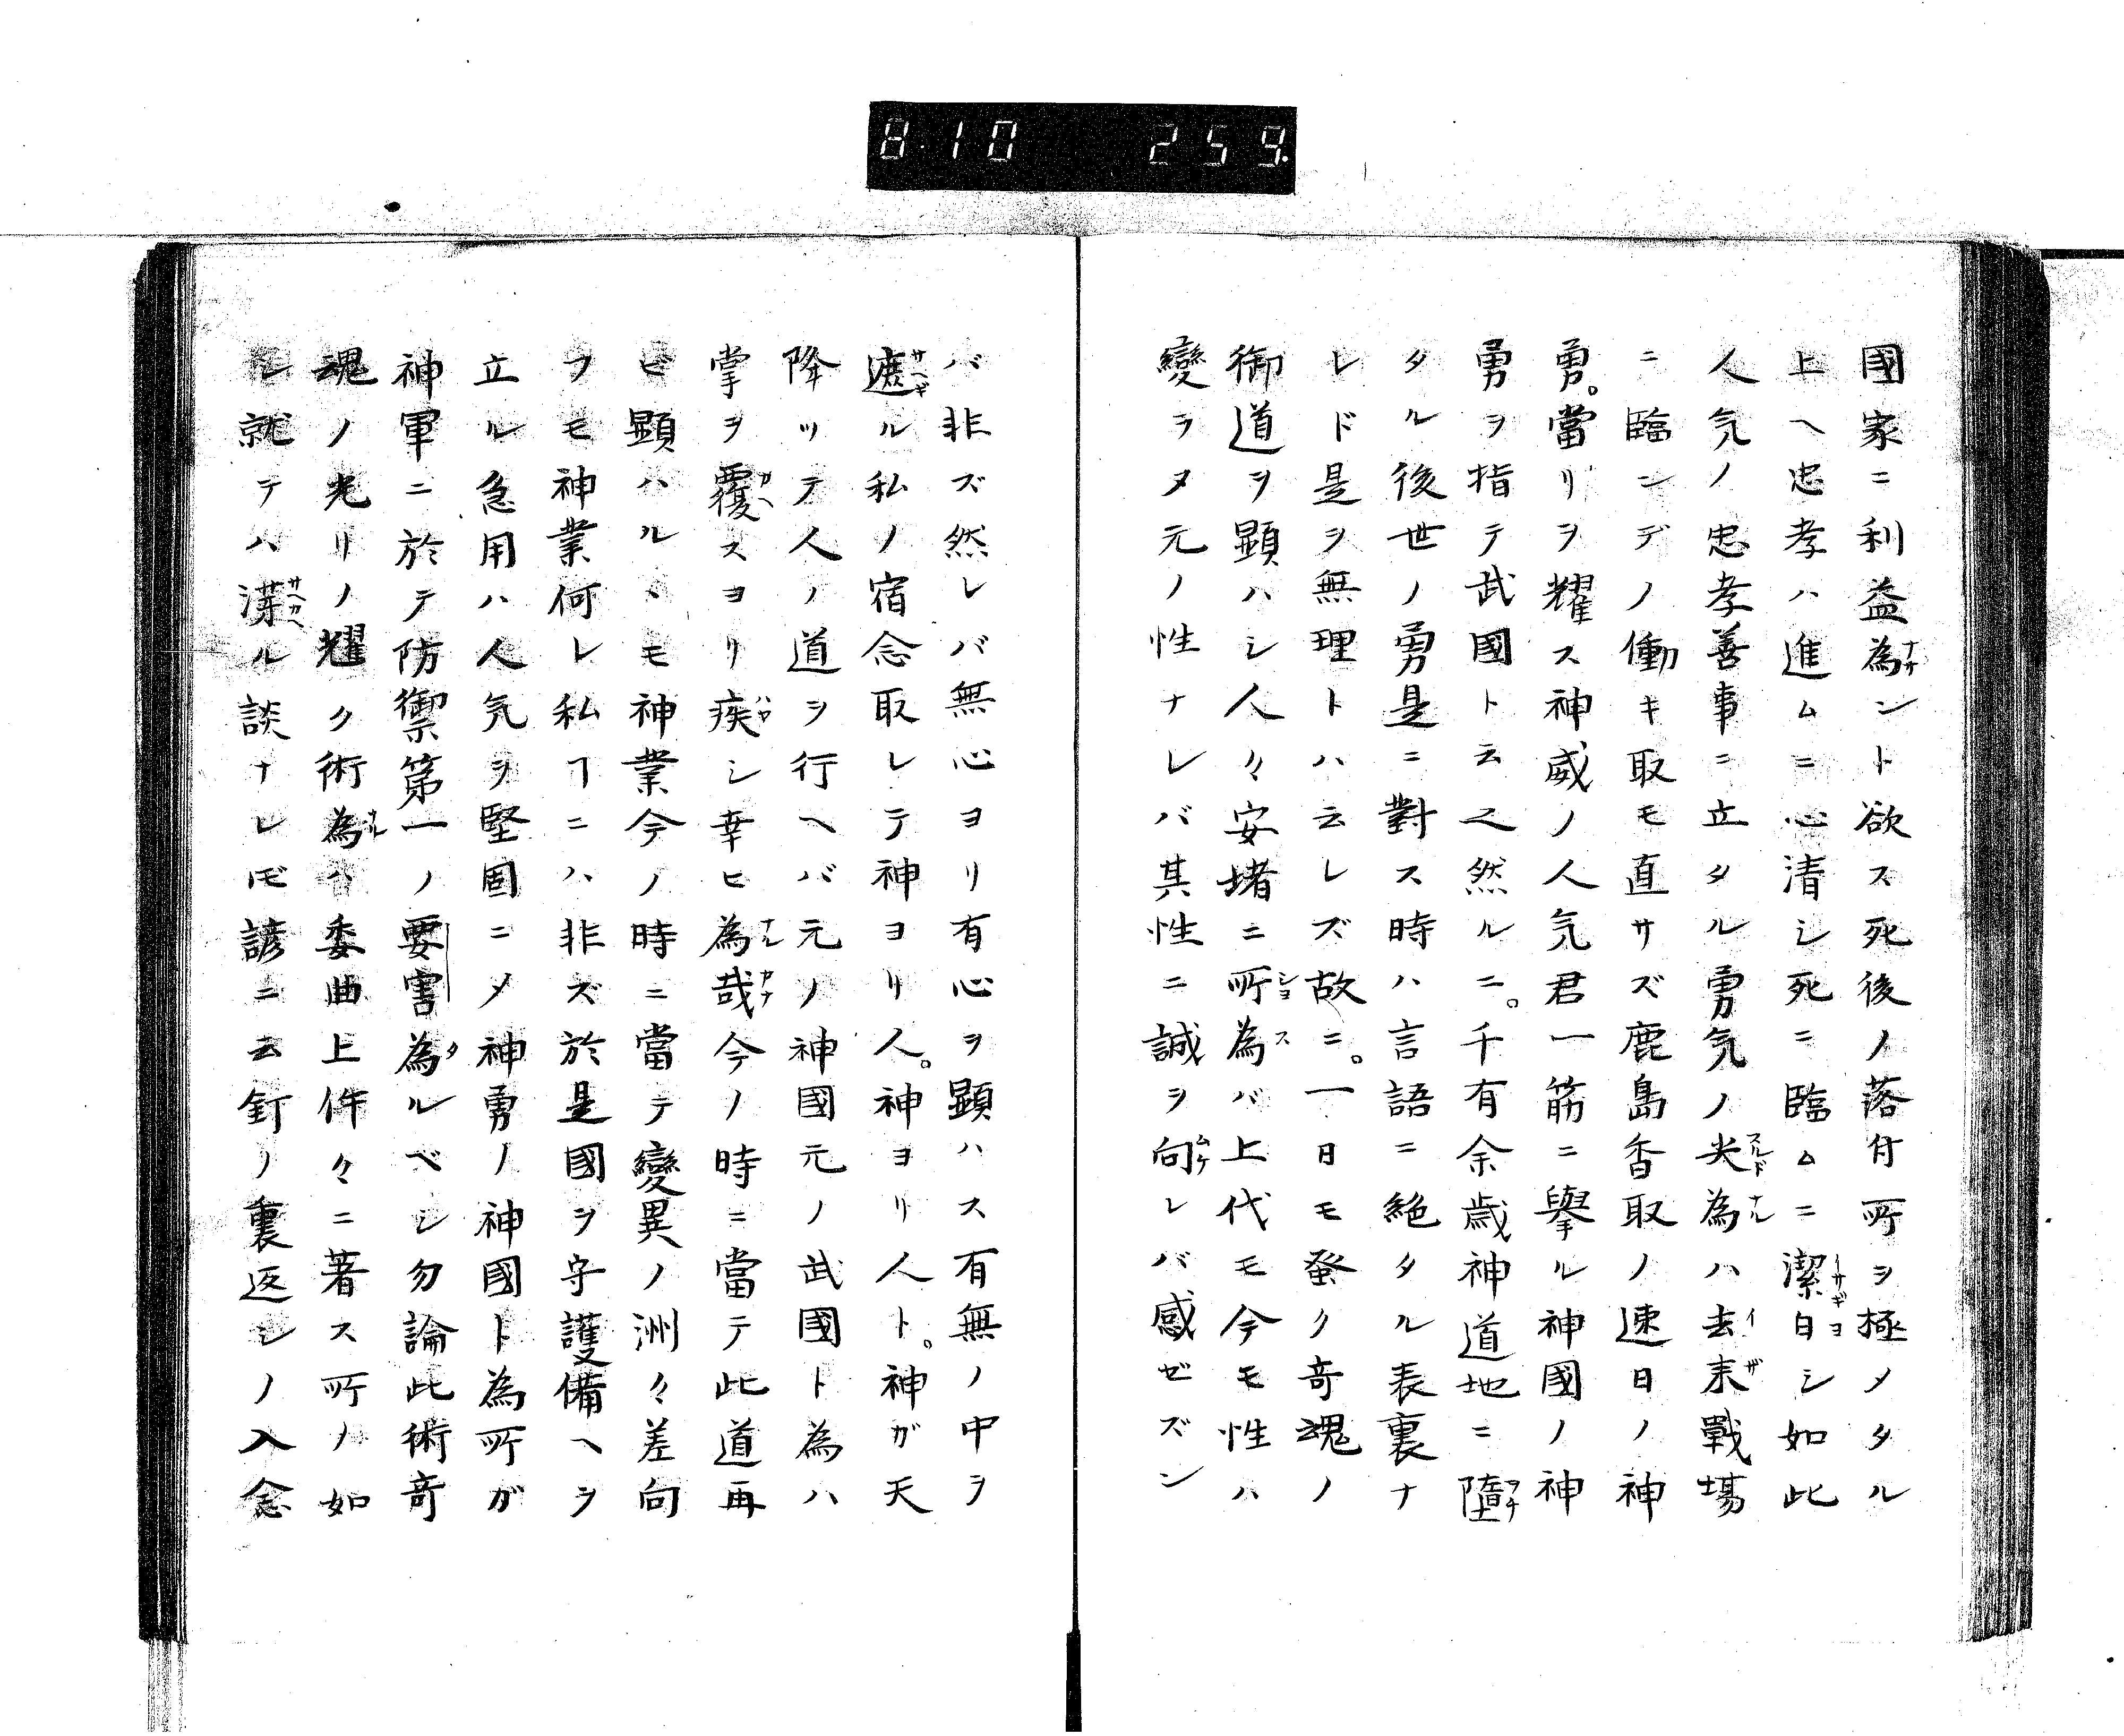 8.10 259.
國家ニ利益為ント欲ス死後ノ落付所ヲ極メタル
上ヘ忠孝ハ進ムニ心清シ死ニ臨ムニ潔白シ如此
人気ノ忠孝善事ニ立タル勇気ノ尖為ハ去来戰場
ニ臨ンデノ働キ取モ直サズ鹿島香取ノ速日ノ神
勇。當リヲ耀ス神威ノ人気君一筋ニ擧ル神國ノ神
勇ヲ指テ武國ト云之然ルニ。千有余歳神道地ニ墮
タル後世ノ勇是ニ對ス時ハ言語ニ絶タル表裏ナ
レド是ヲ無理トハ云レズ故ニ。一日モ發ク奇魂ノ
御道ヲ顕ハシ人々安堵ニ所為バ上代モ今モ性ハ
變ラヌ元ノ性ナレバ其性ニ誠ヲ向レバ感ゼズン
バ非ズ然レバ無心ヨリ有心ヲ顕ハス有無ノ中ヲ
遮ル私ノ宿念取レテ神ヨリ人。神ヨリ人ト。神ガ天
降ッテ人ノ道ヲ行ヘバ元ノ神國元ノ武國ト為ハ
掌ヲ覆スヨリ疾シ幸ヒ為哉今ノ時ニ當テ此道再
ビ顕ハルヽモ神業今ノ時ニ當テ變異ノ洲々差向
フモ神業何レ私ヿニハ非ズ於是國ヲ守護備ヘヲ
立ル急用ハ人気ヲ堅固ニメ神勇ノ神國ト為所ガ
神軍ニ於テ防禦第一ノ要害為ルベシ勿論此術奇
魂ノ光リノ耀ク術為ハ委曲上件々ニ著ス所ノ如
シ就テハ溝ル談ナレ𪜈諺ニ云釘ノ裏返シノ入念